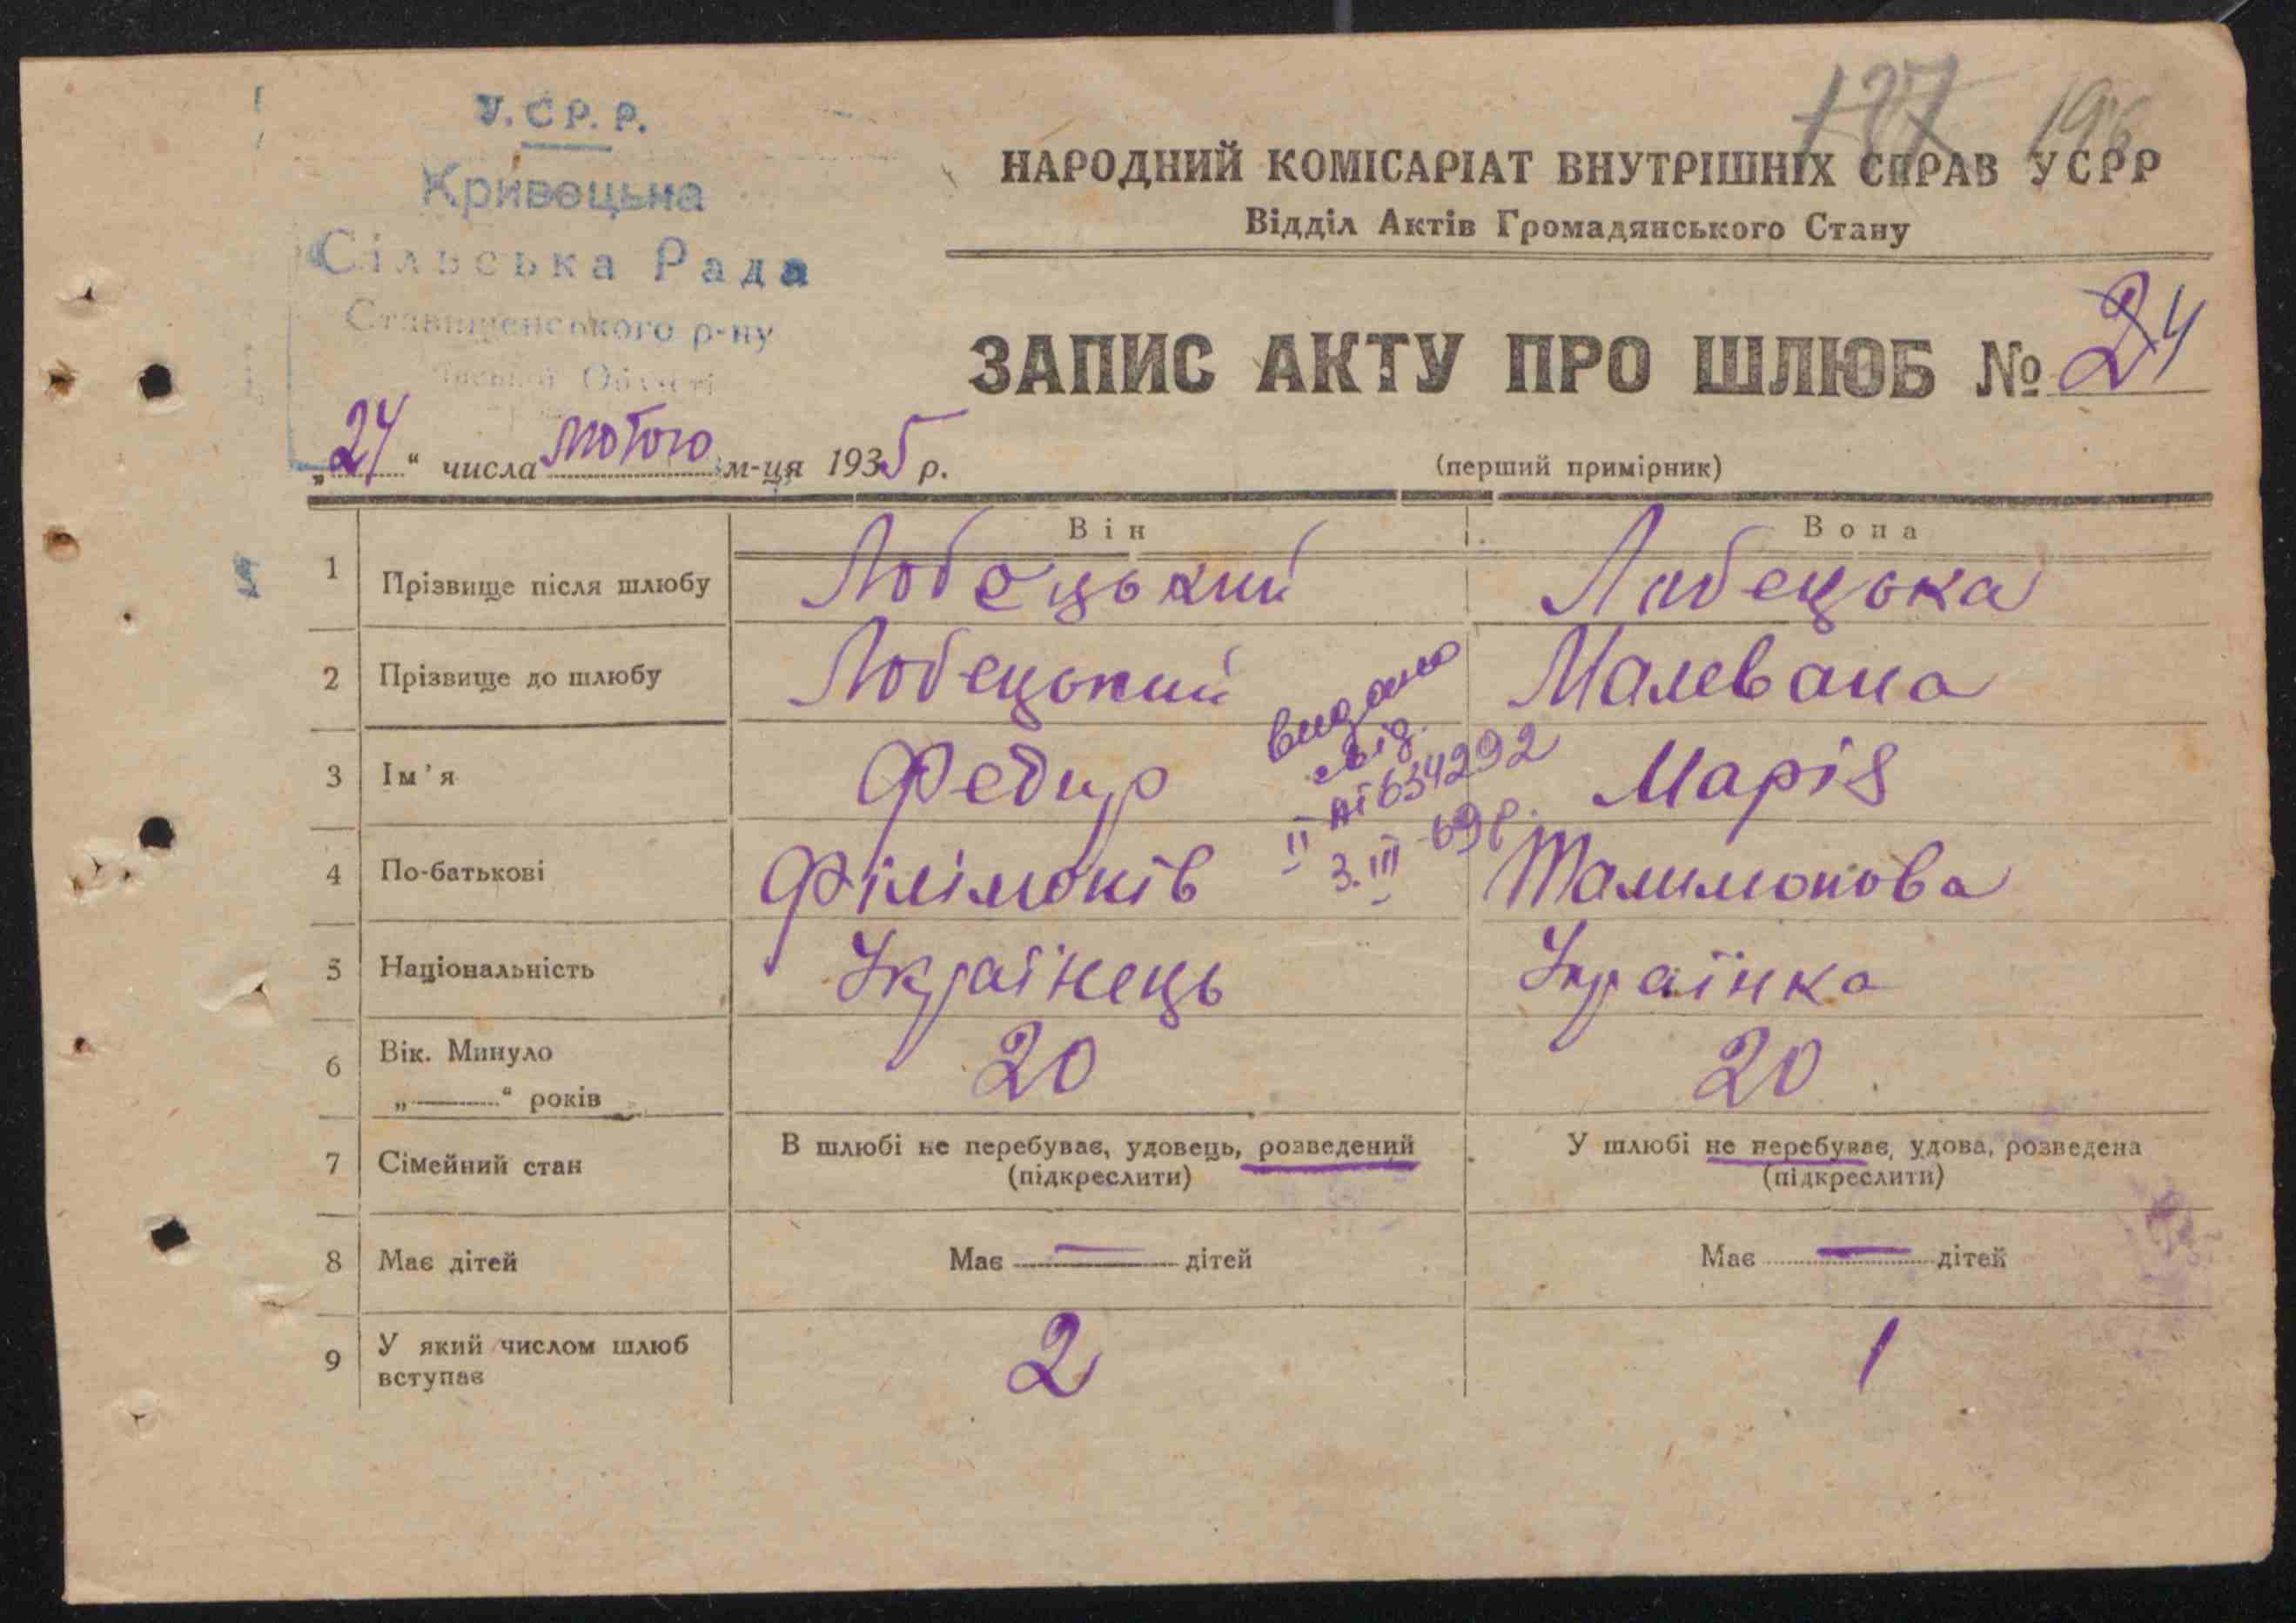 У.С.Р.Р.
Кривецьна
Сільська Рада
Ставищенського р-ну
Області
127 196
НАРОДНИЙ КОМІСАРІАТ ВНУТРІШНІХ СПРАВ УСРР
Відділ Актів Громадянського Стану
ЗАПИС АКТУ ПРО ШЛЮБ № 24
„24“ числа лютого м-ця 1935 р.
(перший примірник)
Він Вона
1 Прізвище після шлюбу Любецький Любецька
2 Прізвище до шлюбу Любецький Малевана
видано
свід.
II АТ 634292
3.III-69р.
3 Ім'я Федир Марія
4 По-батькові Філімонів Талимонова
5 Національність Українець Українка
6 Вік. Минуло 20 20
„——“ років
7 Сімейний стан В шлюбі не перебуває, удовець, розведений У шлюбі не перебуває, удова, розведена
(підкреслити) (підкреслити)
8 Має дітей Має — дітей Має — дітей
9 У який числом шлюб 2 1
вступає